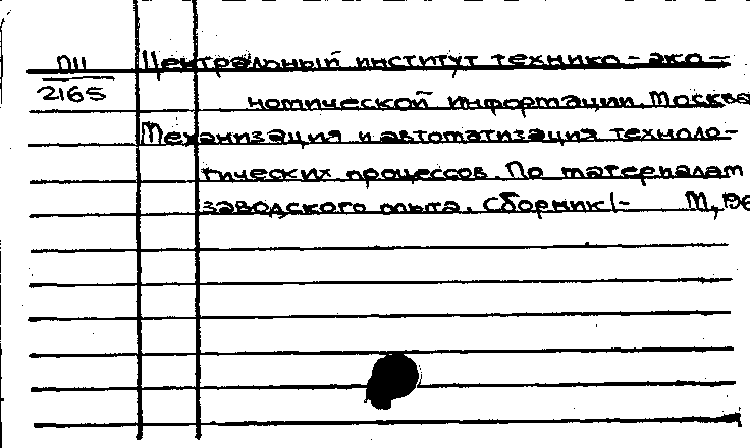 ПII Центральный институт технико-эко-
2165 номической информации. Москва
Механизация и автоматизация техноло-
гических процессов. По материалам
заводского опыта. Сборник 1- М., 196